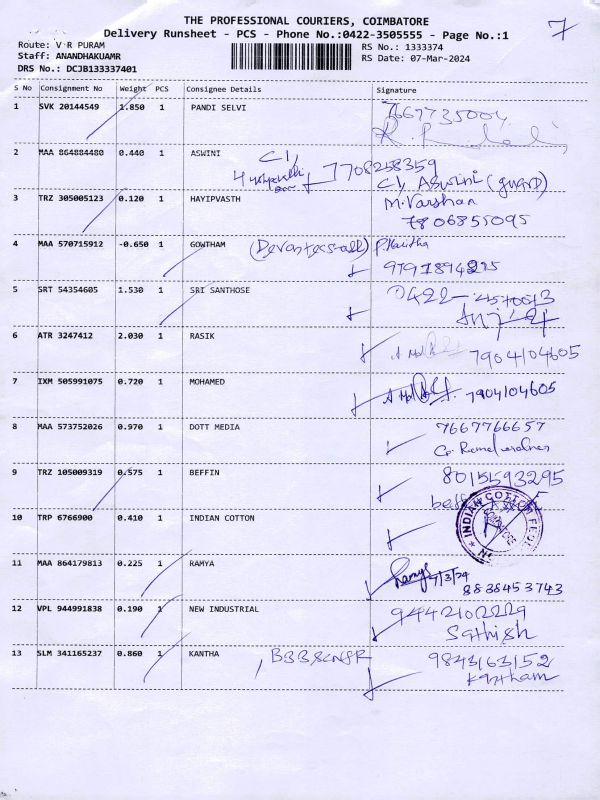 THE PROFESSIONAL COURIERS, COIMBATORE
7
Delivery Runsheet - PCS - Phone No.:0422-3505555 - Page No.:1
Route: V R PURAM
RS No.: 1333374
Staff: ANANDHAKUAMR
RS Date: 07-Mar-2024
DRS No.: DCJB133337401
S No Consignment No Weight PCS Consignee Details Signature
1 SVK 20144549 1.850 1 PANDI SELVI 7667735004
2 MAA 864884480 0.440 1 ASWINI 7708258359
C/, Aswini (guard)
3 TRZ 305005123 0.120 1 HAYIPVASTH M.Varshan
7806855095
4 MAA 570715912 -0.650 1 GOWTHAM
5 SRT 54354605 1.530 1 SRI SANTHOSE
6 ATR 3247412 2.030 1 RASIK 7904104605
7 IXM 505991075 0.720 1 MOHAMED 7904104605
8 MAA 573752026 0.970 1 DOTT MEDIA 7667766657
9 TRZ 105009319 0.575 1 BEFFIN 8015593295
10 TRP 6766900 0.410 1 INDIAN COTTON INDIAN COTTON
11 MAA 864179813 0.225 1 RAMYA Ramya 7/3/24
8838453743
12 VPL 944991838 0.190 1 NEW INDUSTRIAL 9442102229
Sathish
13 SLM 341165237 0.860 1 KANTHA 9843163152